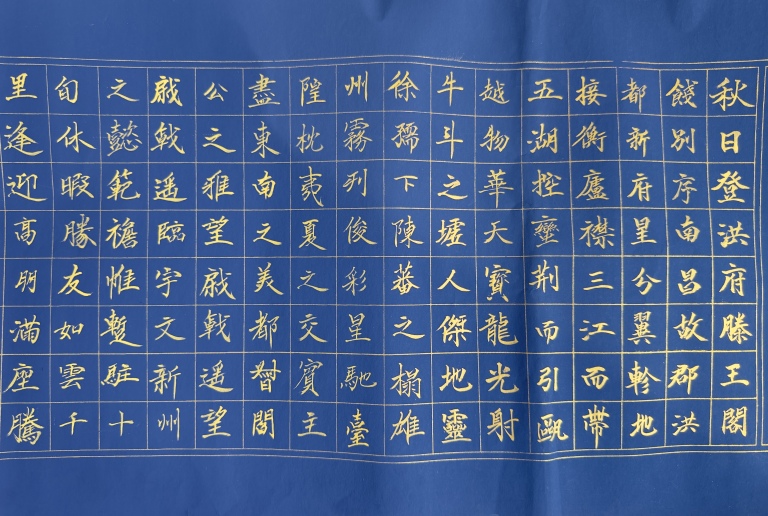 秋日登洪府滕王閣
餞別序南昌故郡洪
都新府星分翼軫地
接衡廬襟三江而帶
五湖控蠻荆而引甌
越物華天寶龍光射
牛斗之墟人傑地靈
徐孺下陳蕃之榻雄
州霧列俊彩星馳臺
隍枕夷夏之交賓主
盡東南之美都督閻
公之雅望戚戟遥望
戚戟遥臨宇文新州
之懿範襜惟蹔駐十
旬休暇勝友如雲千
里逢迎高朋滿座騰